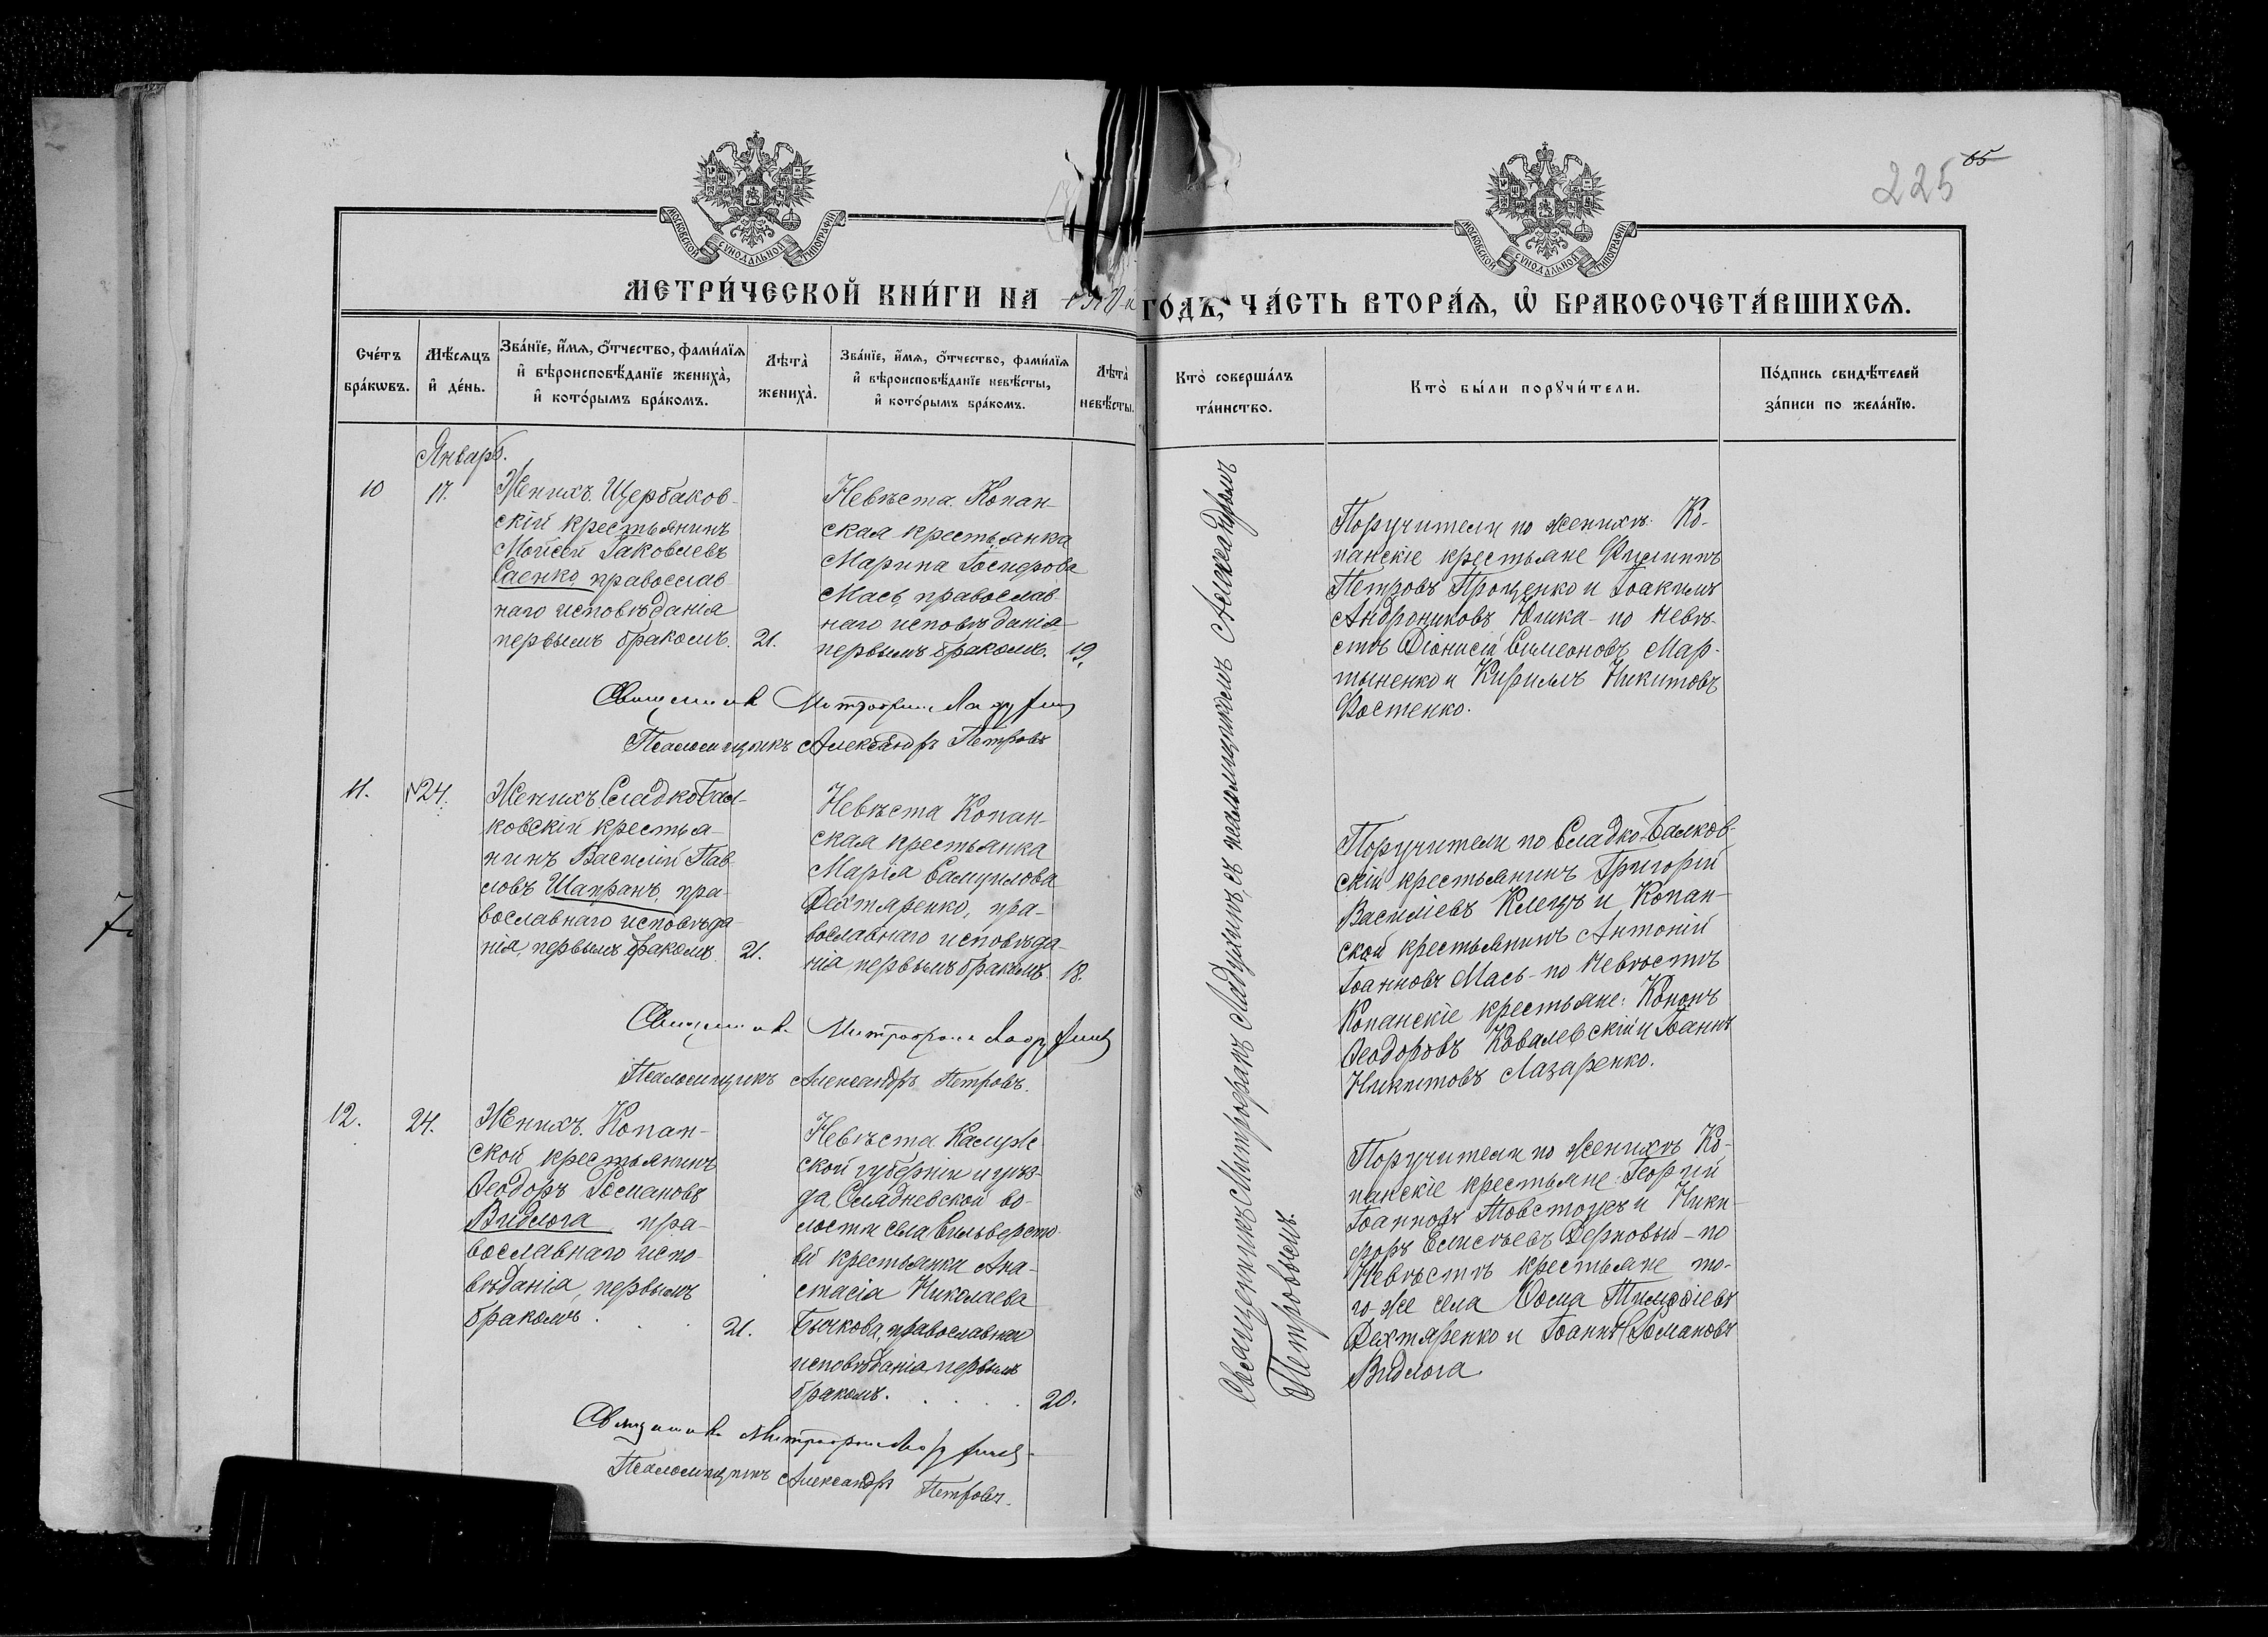 225 65
МОСКОВСКОЙ СУНОДАЛЬНОЙ ТИПОГРАФІИ
МОСКОВСКОЙ СУНОДАЛЬНОЙ ТИПОГРАФІИ
МЕТРИ́ЧЕСКОЙ КНИ́ГИ НА
ГО́ДЪ, ЧА́СТЬ ВТОРА́Я, Ѽ БРАКОСОЧЕТА́ВШИХСЯ.
Сче́тъ бра́кѡвъ.
Мѣ́сяцъ и҆ де́нь.
Зва́нїе, и҆́мя, ѻ҆́тчество, фами́лїя
и҆ вѣроисповѣ́данїе жениха̀,
и҆ кото́рымъ бра́комъ.
Лѣта̀ жениха̀.
Зва́нїе, и҆́мя, ѻ҆́тчество, фами́лїя
и҆ вѣроисповѣ́данїе невѣ́сты,
и҆ кото́рымъ бра́комъ.
Лѣта̀ невѣ́сты.
Кто̀ соверша́лъ та́инство.
Кто̀ бы́ли порꙋчи́тели.
По́дпись свидѣ́телей за́писи по жела́нїю.
Январь.
10
17.
Женихъ. Щербаков-
скій крестьянинъ
Мойсей Іаковлевъ
Саенко, православ-
наго исповѣданія
первымъ бракомъ.
21.
Невѣста. Копан-
ская крестьянка
Марина Іосифова
Мась, православ-
наго исповѣданія
первымъ бракомъ.
19.
Священникъ Митрофанъ
Псаломщикъ Александръ Петровъ
Поручители по женихѣ: Ко-
панскіе крестьяне Филиппъ
Петровъ Проценко и Іоакимъ
Андрониковъ Юшка - по невѣ-
стѣ Діонисій Симеоновъ Мар-
тыненко и Кириллъ Никитовъ
Костенко.
11.
24.
Женихъ. Сладкобал-
ковскій крестья-
нинъ Василій Пав-
ловъ Шапранъ, пра-
вославнаго исповѣда-
нія, первымъ бракомъ.
21.
Невѣста Копан-
ская крестьянка
Марія Самуилова
Дехтяренко, пра-
вославнаго исповѣда-
нія, первымъ бракомъ.
18.
Священникъ Митрофанъ
Псаломщикъ Александръ Петровъ.
Поручители по Сладко-Балков-
скій крестьянинъ Григорій
Василіевъ Клецъ и Копан-
ской крестьянинъ Антоній
Іоанновъ Мась - по невѣстѣ
Копанскіе крестьяне: Кононъ
Ѳеодоровъ Ковалевскій и Іоаннъ
Никитовъ Лазаренко.
12.
24.
Женихъ. Копан-
ской крестьянинъ
Ѳеодоръ Романовъ
Видлога пра-
вославнаго испо-
вѣданія, первымъ
бракомъ
21.
Невѣста Калуж-
ской губерніи и уѣз-
да Сладневской во-
лости села Сильверсто-
ва крестьянка Ана-
стасія Николаева
Бычкова, православнаго
исповѣданія первымъ
бракомъ.
20.
Священникъ Митрофанъ
Псаломщикъ Александръ Петровъ.
Поручители по женихѣ Ко-
панскіе крестьяне: Георгій
Іоанновъ Товстоцеъ и Ники-
форъ Елисѣевъ Дерновый - по
Невѣстѣ крестьяне то-
го-же села Косма Тимоѳіевъ
Дехтяренко и Іоаннъ Романовъ
Видлога
Священникъ Митрофанъ Ладухинъ, съ псаломщикомъ Александромъ
Петровымъ.